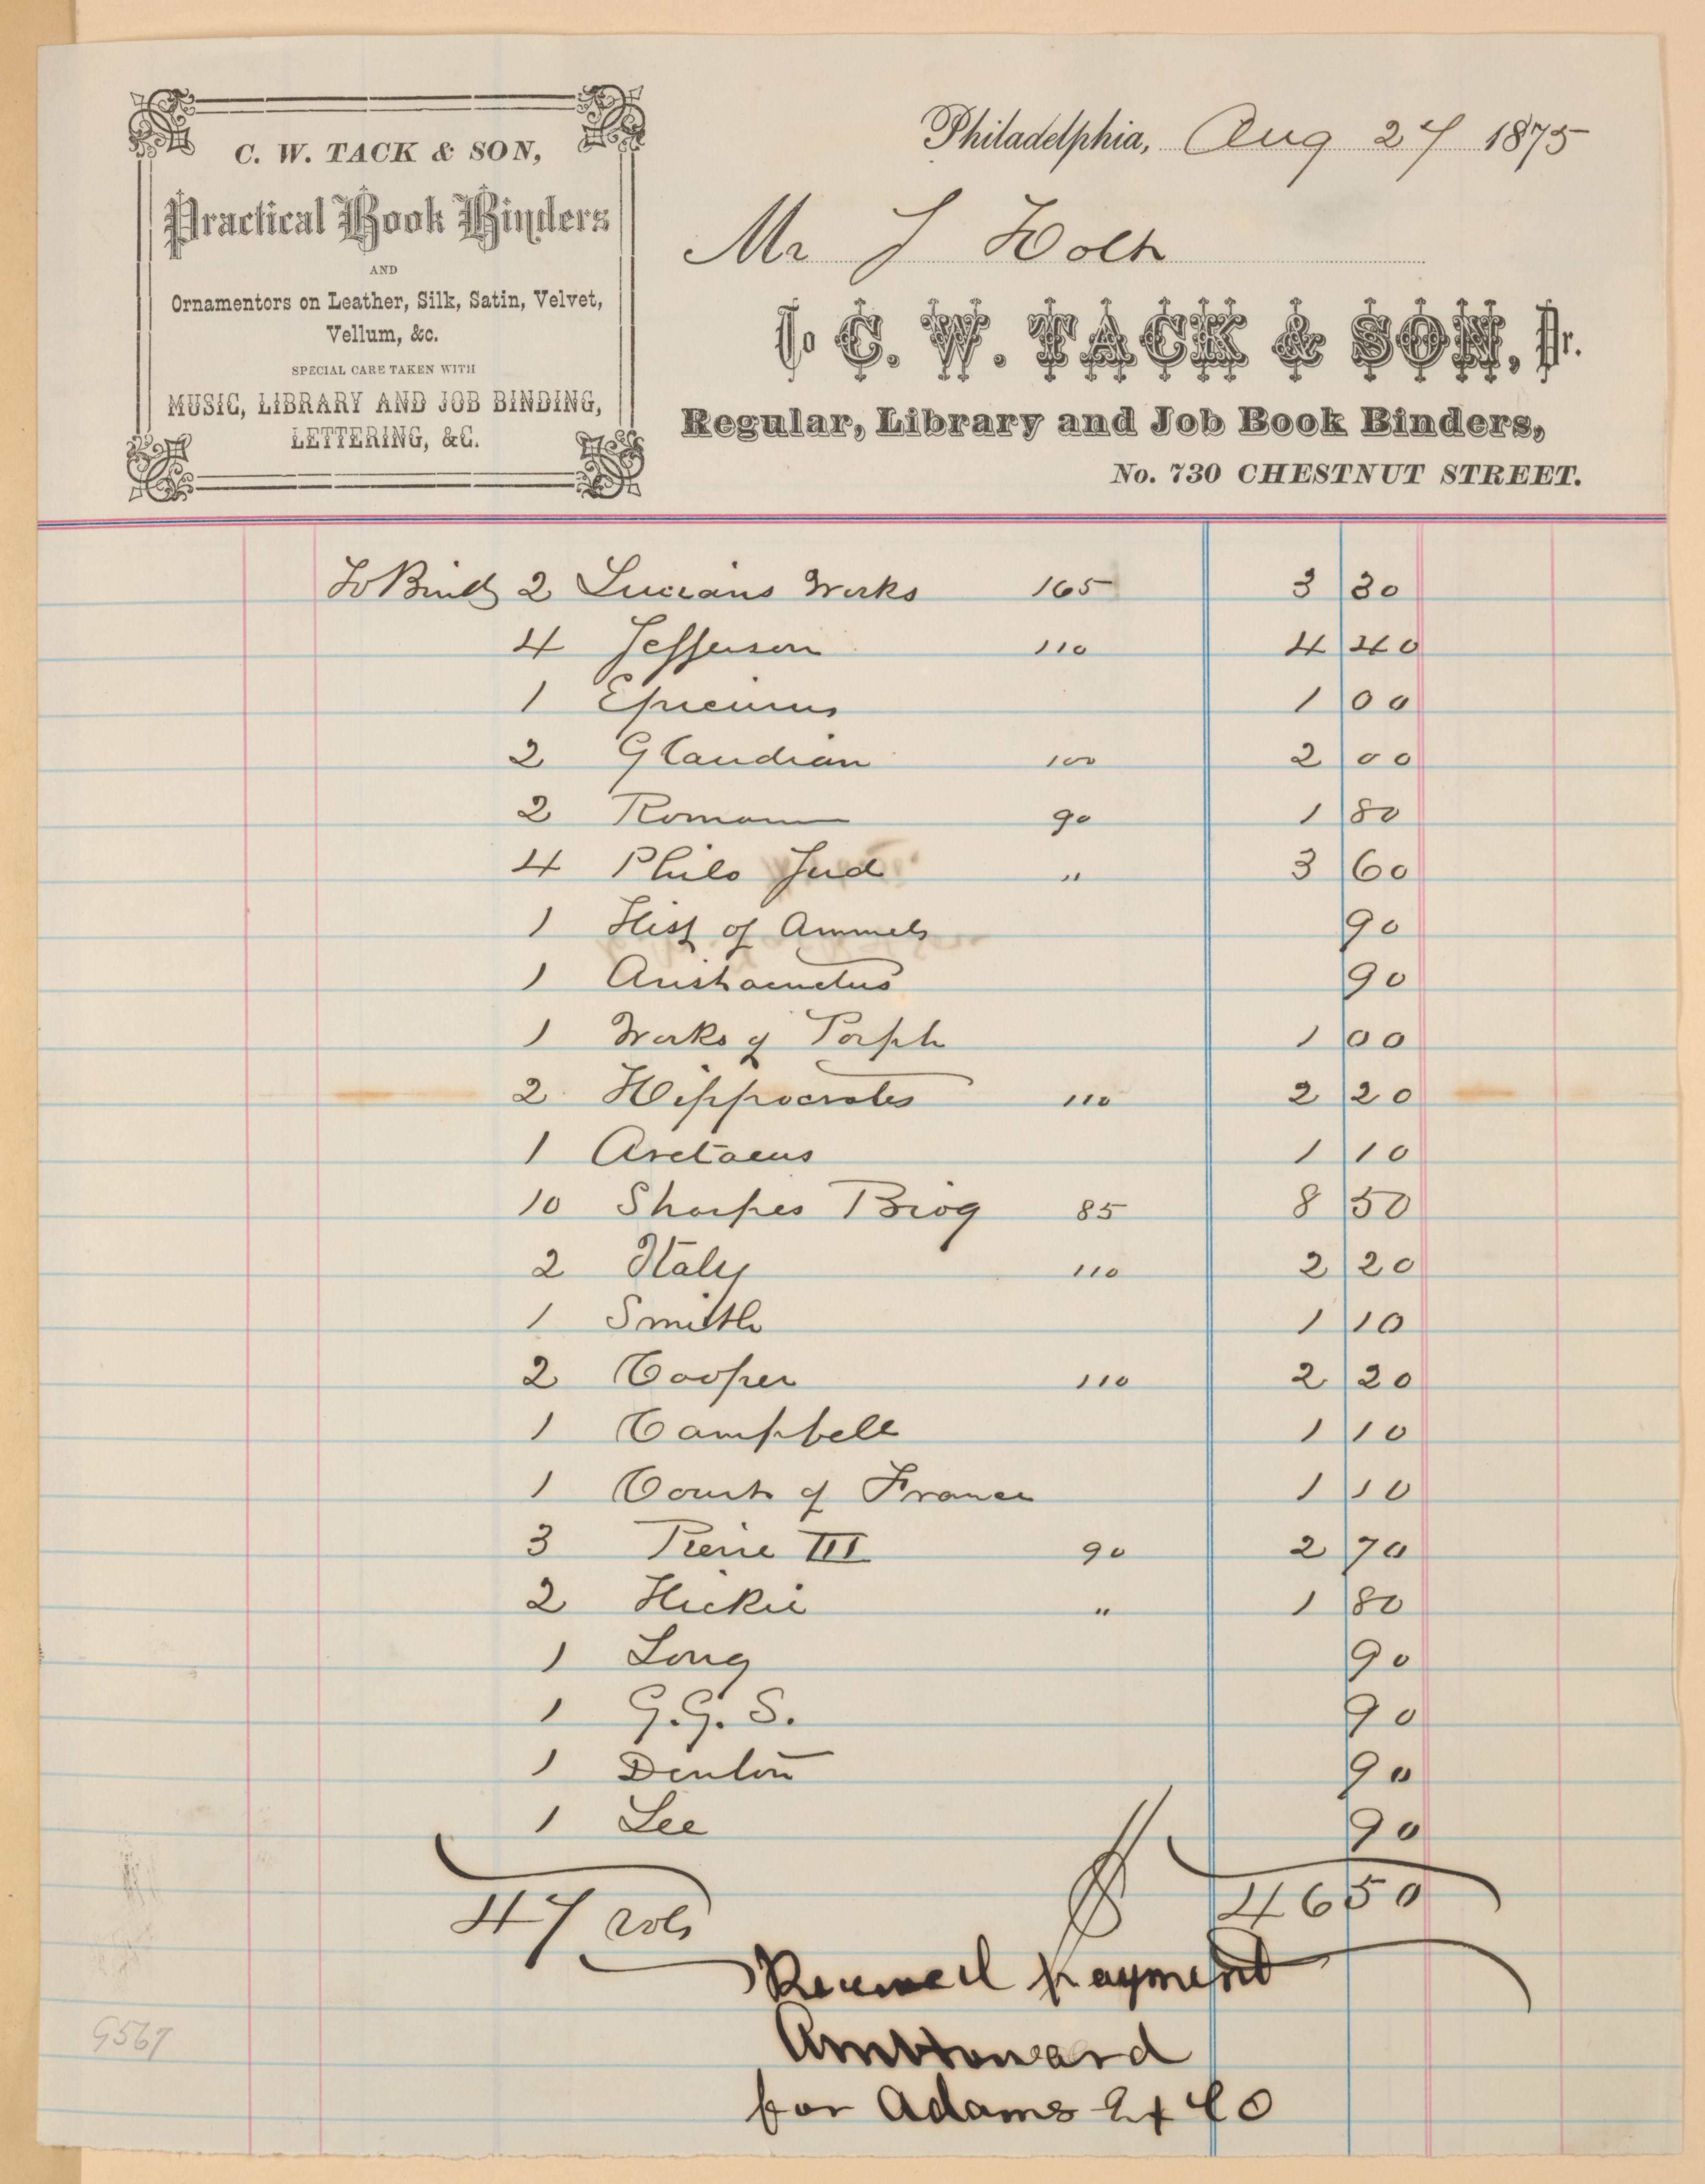 C. W. TACK & SON,
Practical Book Binders
AND
Ornamentors on Leather, Silk, Satin, Velvet,
Vellum, &c.
SPECIAL CARE TAKEN WITH
MUSIC, LIBRARY AND JOB BINDING,
LETTERING, &C.
Philadelphia, Aug 27 1875
Mr J Holt
To C. W. TACK & SON, Dr.
Regular, Library and Job Book Binders,
No. 730 CHESTNUT STREET.
To Bindg 2 Lucians Works 165 3 30
4 Jefferson 110 4 40
1 Epicurus 1 00
2 Claudian 100 2 00
2 Romann 90 1 80
4 Philo Jud " 3 60
1 Hist of Animels 90
1 Aristaenetus 90
1 Works of Porph 1 00
2 Hippocrates 110 2 20
1 Aretaeus 1 10
10 Sharpes Biog 85 8 50
2 Italy 110 2 20
1 Smith 1 10
2 Cooper 110 2 20
1 Campbell 1 10
1 Court of France 1 10
3 Pierre III 90 2 70
2 Hickie " 1 80
1 Long 90
1 G. G. S. 90
1 Denton 90
1 Lee 90
47 vols $ 46 50
Received payment
for Adams Ex Co
9567